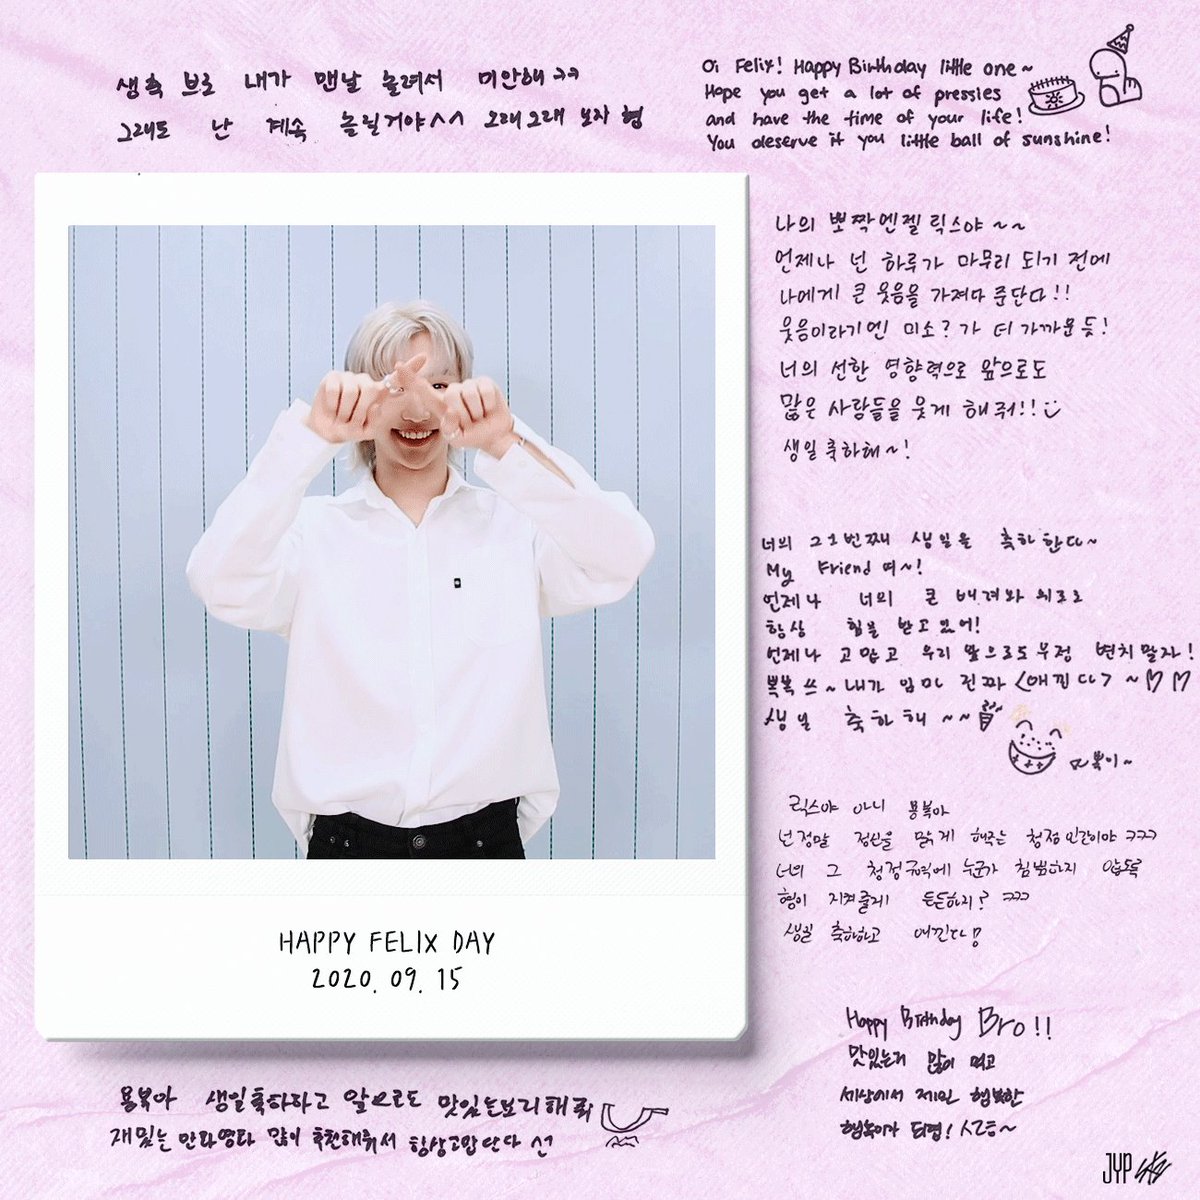 생축 브로 내가 맨날 놀려서 미안해 ㅋㅋ
그래도 난 계속 놀릴거야^^ 오래오래 보자 형
Oi Felix! Happy Birthday little one~
Hope you get a lot of pressies
and have the time of your life!
You deserve it you little ball of sunshine!
나의 뽀짝엔젤 릭스야~~
언제나 넌 하루가 마무리 되기 전에
나에게 큰 웃음을 가져다 준단다!!
웃음이라기엔 미소?가 더 가까운듯!
너의 선한 영향력으로 앞으로도
많은 사람들을 웃게 해줘!!
생일 축하해~!
너의 21번째 생일을 축하 한다~
My Friend 여~!
언제나 너의 큰 배려와 위로로
항상 힘을 받고 있어!
언제나 고맙고 우리 앞으로도 우정 변치 말자!
뽁뽁 쓰~ 내가 임마 진짜 <애낀다> ~♡♡
생일 축하해~~
릭스야 아니 용복아
넌 정말 정신을 맑게 해주는 청정인간이야 ㅋㅋㅋ
너의 그 청정구역에 누군가 침범하지 않도록
형이 지켜줄게 든든하지? ㅋㅋㅋ
생일 축하하고 애낀다!
HAPPY FELIX DAY
2020. 09. 15
Happy Birthday Bro!!
맛있는거 많이 먹고
세상에서 제일 행복한
행복이가 되렴!
용복아 생일축하하고 앞으로도 맛있는요리해줘
재밌는 만화영화 많이 추천해줘서 항상고맙단다
JYP